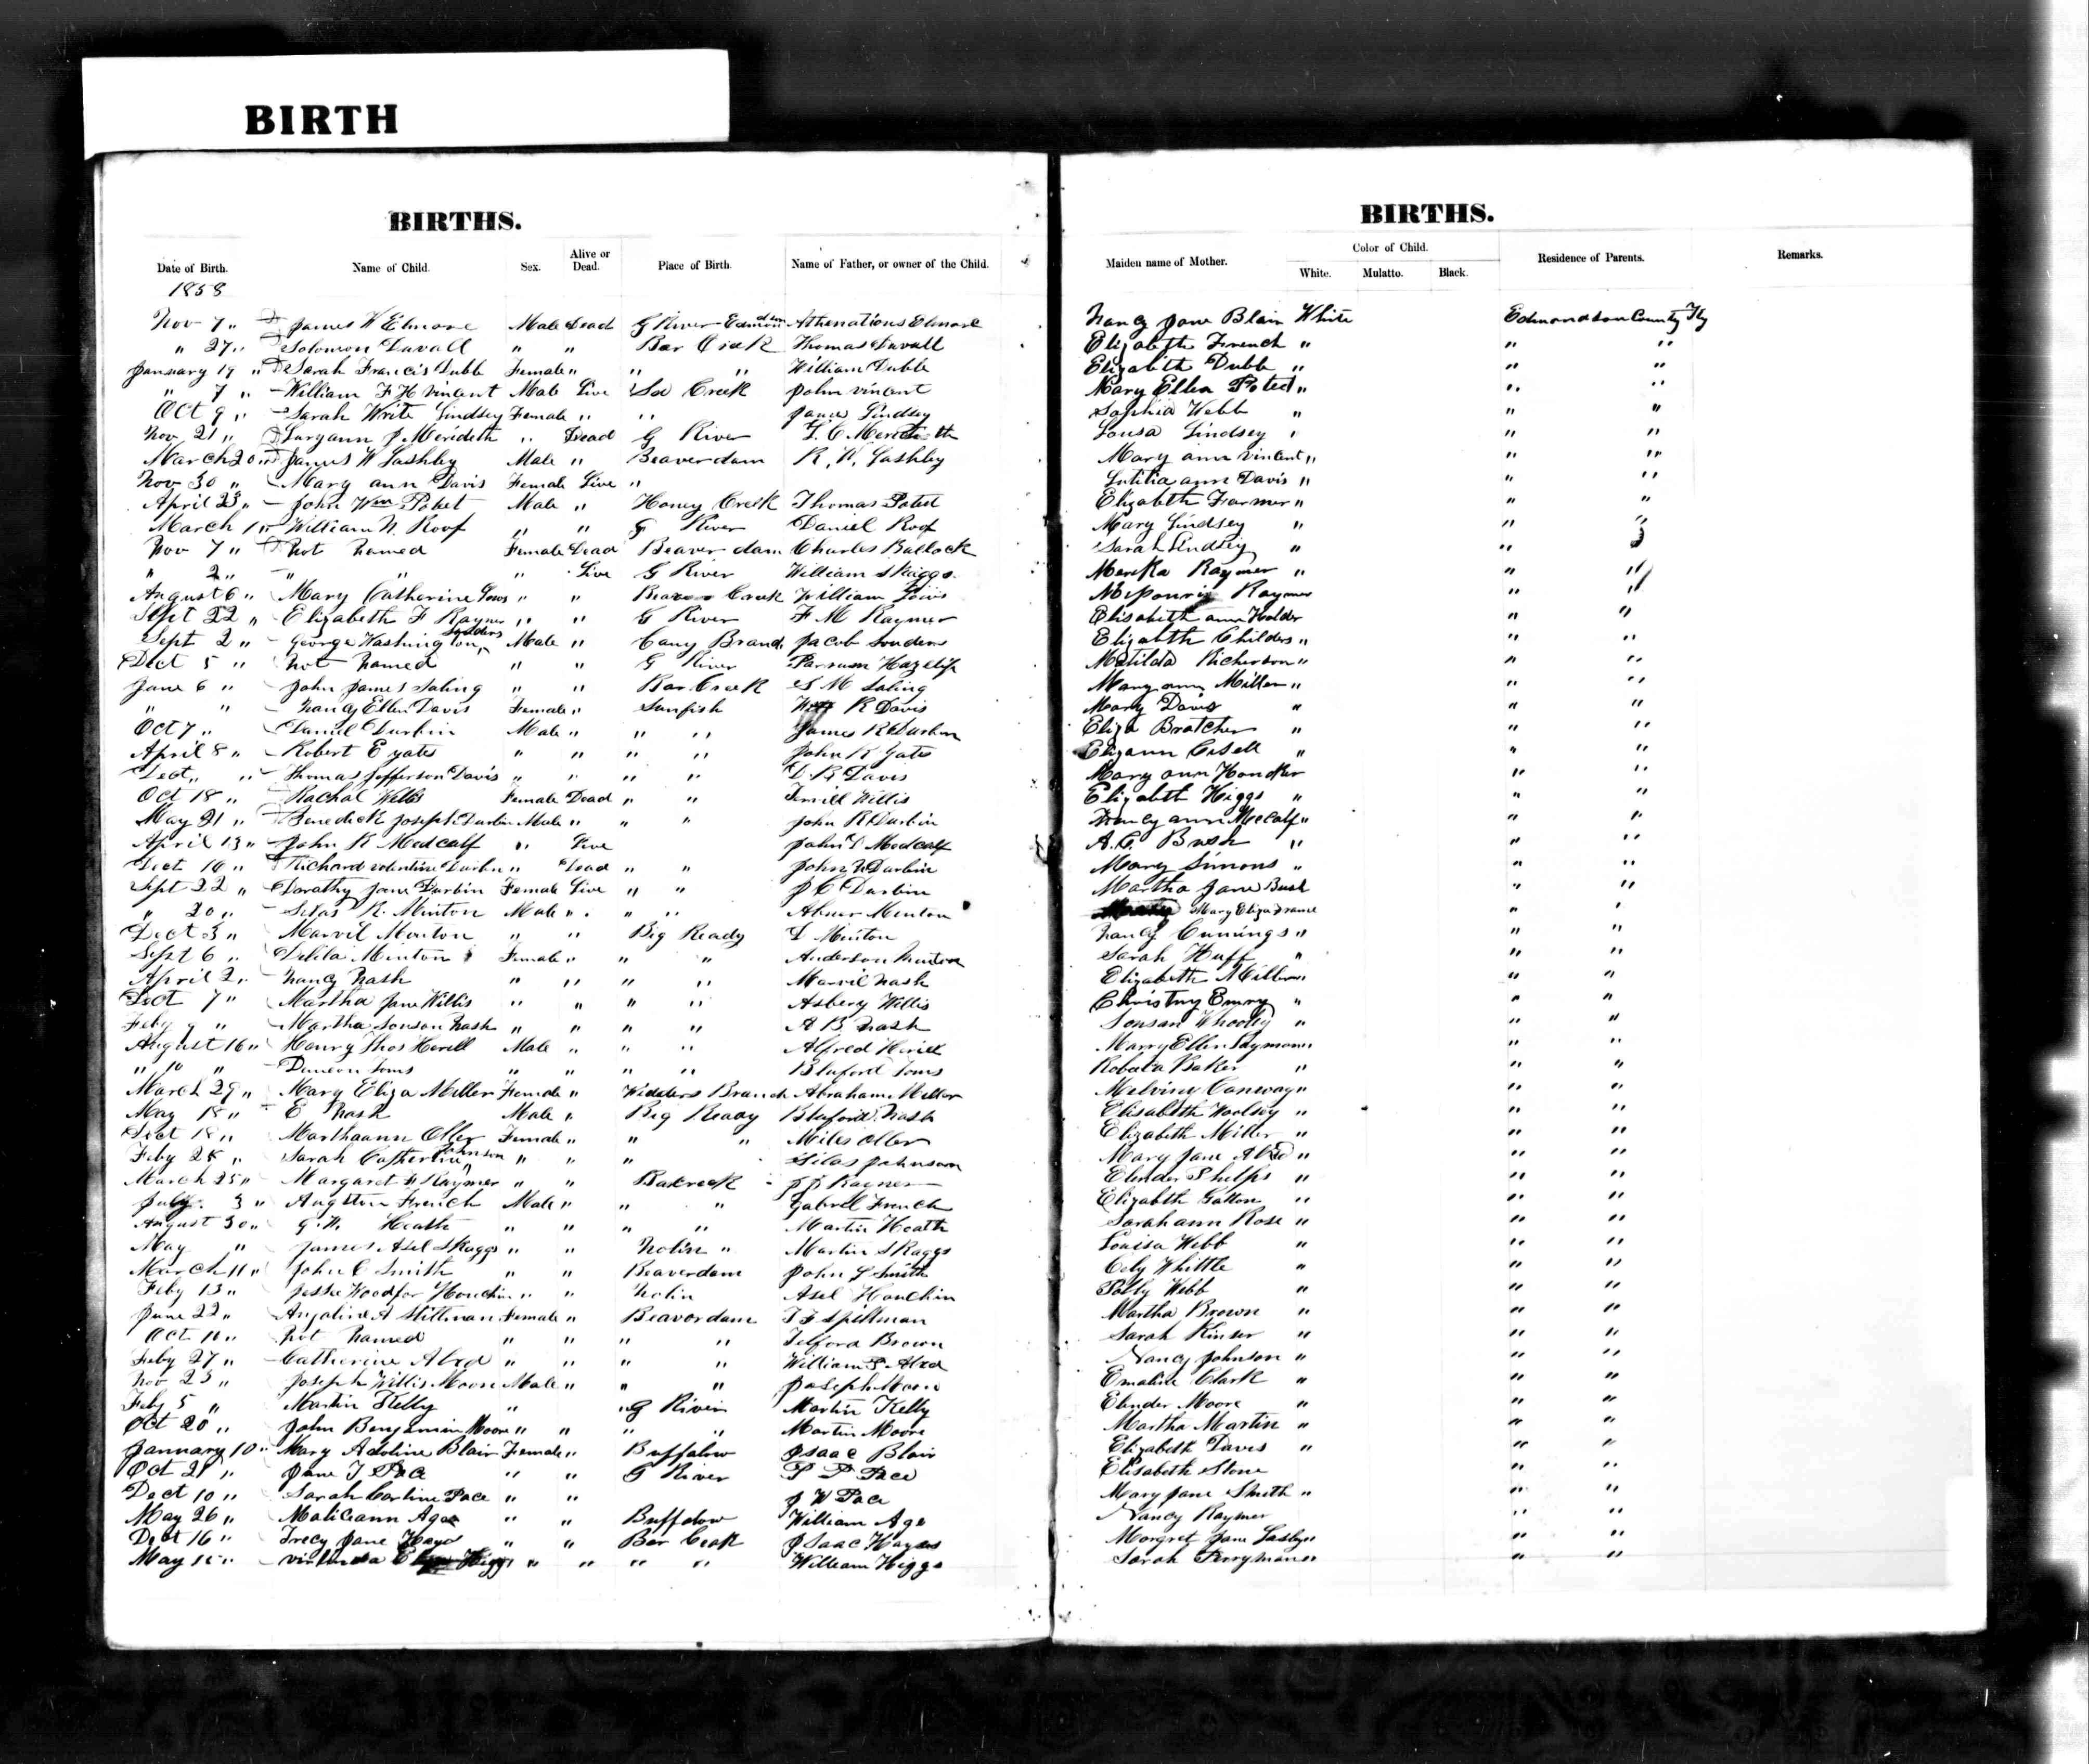 BIRTH
BIRTHS.
Date of Birth. Name of Child. Sex. Alive or Dead. Place of Birth. Name of Father, or owner of the Child.
1858
Nov 7 " James W Elmore Male Dead G River Edmonson Elmore
" 27 " Solomon Davall " " Bar Creek Thomas Davall
January 19 " Sarah Francis Dubb Female " " " William Dubb
" 7 " William F H Vincent Male Live Creek John Vincent
Oct 9 " Sarah Write Lindsey Female " " " James Lindsey
Nov 21 " J Merideth " Dead G River L. C Meredeth
March 20 " James W Lashley Male " Beaverdam R. N. Lashley
Nov 30 " Mary ann Davis Female Live "
April 23 " John Wm Potet Male " Honey Creek Thomas Potet
March William N. Roof " " G River Daniel Roof
Nov 7 " Not Named Female Dead Beaver dam Charles Ballock
" 2 " " " " Live G River William Skaggs
August 6 " Mary Catherine " " Creek William
Sept 22 " Elizabeth F Raymer " " G River F M Raymer
Sept 2 " George Washington Souders Male " Cany Branch Jacob Souders
Dect 5 " Not Named " " G River Hazelip
June 6 " John James Saling " " Bar Creek S M Saling
" " Nancy Ellen Davis Female " Sunfish R Davis
Oct 7 " Daniel Durbin Male " " " James R Durbin
April 8 " Robert E Yates " " " " John R Yates
Dect " " Thomas Jefferson Davis " " " " D. R Davis
Oct 18 " Rachal Willis Female Dead " " Terrill Willis
May 21 " Benedick Joseph Durbin Male " " " John R Durbin
April 13 " John R Medcalf " Live John Medcalf
Dect 16 " Richard Volentine Durbin " Dead " " John N Durbin
Sept 22 " Darathy Jane Durbin Female Live " " J C Durbin
" 20 " Silas R. Minton Male " " " Abner Minton
Dect 3 " Marvil Minton " " Big Ready Minton
Sept 6 " Delila Minton Female " " " Anderson Minton
April 2 " Nancy Nash " " " " Marvil Nash
Dect 7 " Martha Jane Willis " " " " Asbery Willis
Feby 9 " Martha Sousan Nash " " " " A B Nash
August 16 " Henry Thos Herell Male " " " Alfred Herell
" 10 " " " " " Bluford
March 29 " Mary Eliza Miller Female " Widders Branch Abraham Miller
May 18 " E Nash Male " Big Ready Bluford Nash
Dect 18 " Marthaann Oller Female " " " Miles Oller
Feby 28 " Sarah Catherine Johnson " " " Silas Johnson
March 25 " Margaret F Raymer " " Bacreek Raymer
July 3 " Augstin French Male " " " Gabrell French
August 30 " G. W. Heath " " " " Martin Heath
May " James Asel Skaggs " " Nolin " Martin Skaggs
March 11 " John C Smith " " Beaverdam John L Smith
Feby 13 " Jesse Woodfor Houchin " " Nolin Asel Houchin
June 22 " Anjaline A Stillman Female " Beavordam T F Spillman
Oct 10 " Not Named " " " " Telford Brown
Feby 27 " Catherine Alxd " " " " William Alxd
Nov 23 " Joseph Willis Moore Male " " " Joseph Moore
Feby 5 " Martin Kelly " " G River Martin Kelly
Oct 20 " John Benjamin Moore " " " " Martin Moore
January 10 " Mary Adoline Blair Female " Buffalow Isaac Blair
Oct 21 " Jane T Pace " " G River Pace
Dect 10 " Sarah Carline Pace " " J W Pace
May 26 " Maliceann Age " " Buffalow William Age
Dect 16 " Trecy Jane Hayes " " Bar Creek Isaac Hayes
May Higgs " " " " William Higgs
BIRTHS.
Maiden name of Mother. Color of Child. White. Mulatto. Black. Residence of Parents. Remarks.
Nancy Jane Blair White Edmondson County Ky
Elizabeth French " " "
Elizabeth Dubb " " "
Mary Ellen Poteet " " "
Sophia Webb " " "
Lousa Lindsey " " "
Mary ann Vincent " " "
Lutitia ann Davis " " "
Elizabeth Farmer " " "
Mary Lindsey " " "
Sarah Lindsey " "
Raymer " " "
Raymer " "
Elisabeth ann Holder " "
Elizabeth Childers " " "
Matilda Richerson " " "
Mary ann Miller " " "
Mary Davis " " "
Eliza Bratcher " " "
Elizann " " "
Mary ann " "
Elizabeth Higgs " " "
Nancy ann Metcalf " " "
A. C. Bush " " "
Mary Simons " " "
Martha Jane Bush " "
Mary Eliza " "
Nancy Cunnings " " "
Sarah Huff " " "
Elizabeth " "
Christny Emry " " "
Sousan Whooley " " "
Marry Ellen " "
Robata Baker " " "
Melviny Conway " " "
Elisabeth Woolsey " " "
Elizabeth Miller " " "
Mary Jane Alxd " " "
Elender Phelps " " "
Elizabeth Gatton " " "
Sarah ann Rose " " "
Louisa Webb " " "
Cely Whittle " " "
Polly Webb " " "
Martha Brown " " "
Sarah Kinser " " "
Nancy Johnson " " "
Emaline Clark " " "
Elender Moore " " "
Martha Martin " " "
Elizabeth Davis " " "
Elisabeth Stone " "
Mary Jane Smith " " "
Nancy Raymer " "
Margret Jane " "
Sarah Perryman " " "